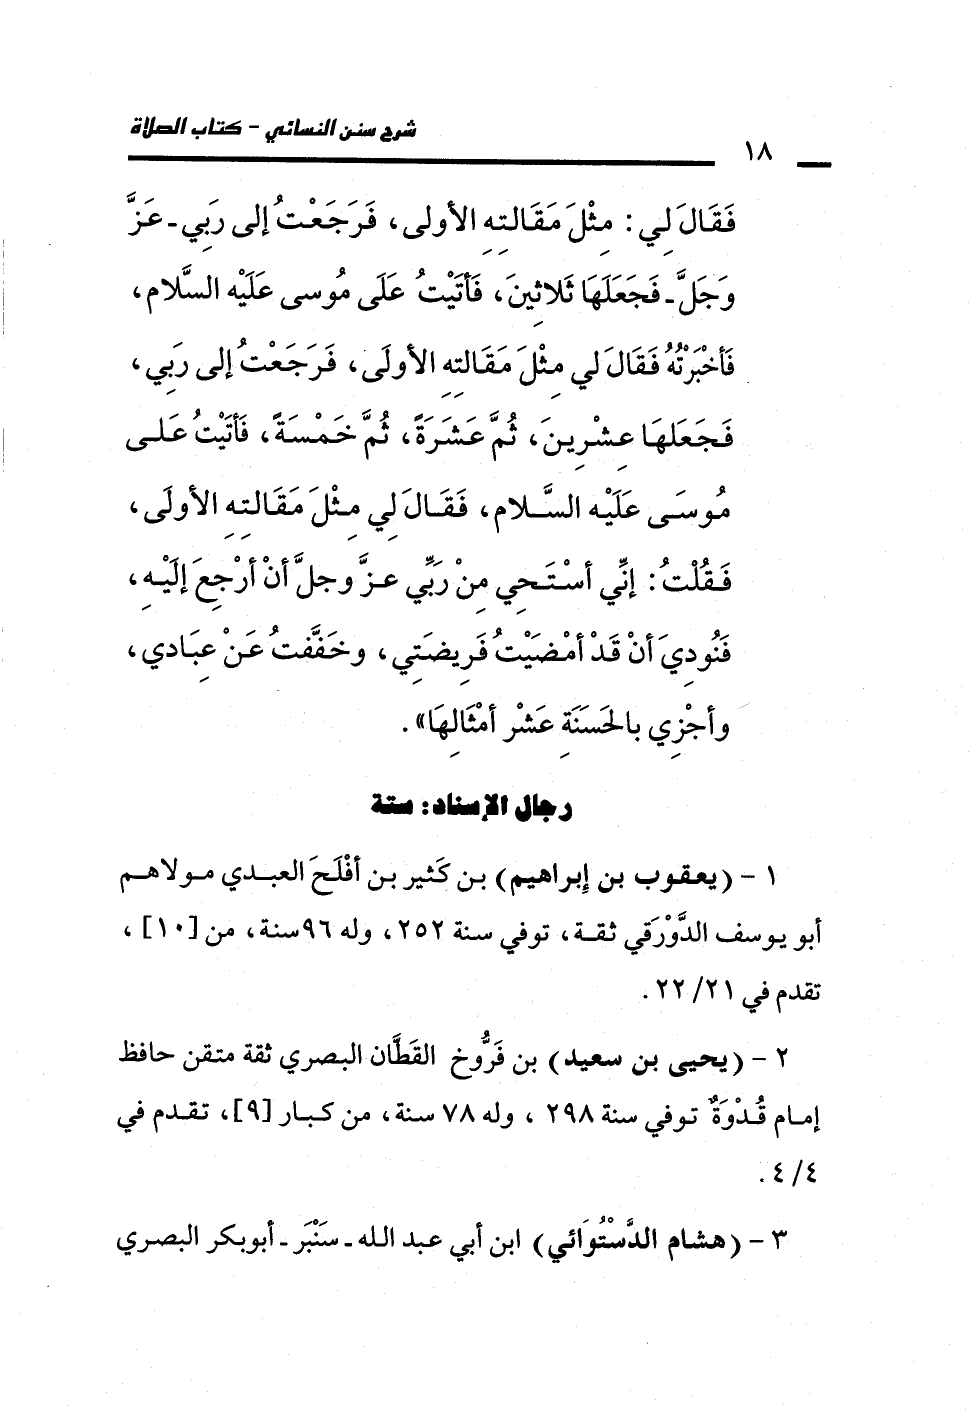 شرح سنن النسائي - كتاب الصلاة
١٨
فَقَالَ لِي : مِثْلَ مَقَالَتِهِ الأولى، فَرَجَعْتُ إلى رَبِي ـ عَزَّ
وَجَلَّ ـ فَجَعَلَهَا ثَلاثِينَ، فَأَتَيْتُ عَلَى مُوسى عَلَيْه السَّلام،
فَأخْبَرْتُهُ فَقَالَ لي مِثْلَ مَقَالَتِهِ الأولَى، فَرَجَعْتُ إلى رَبِي،
فَجَعَلَهَا عِشْرِينَ، ثُمَّ عَشَرَةً، ثُمَّ خَمْسَةً، فَأَتَيْتُ عَلى
مُوسَى عَلَيْه السَّلام، فَقَالَ لِي مِثْلَ مَقَالَتِهِ الأولَى،
فَقُلْتُ : إنِّي أسْتَحِي مِنْ رَبِّي عزَّ وجلَّ أنْ أرْجِعَ إلَيْهِ،
فَنُودِيَ أنْ قَدْ أمْضَيْتُ فَرِيضَتِي، وخَفَّفتُ عَنْ عِبَادي،
وأجْزِي بِالحَسَنَةِ عَشْرَ أمْثَالِهَا» .
رجال الإسناد: ستة
١ - (يعقوب بن إبراهيم) بن كَثير بن أفْلَحَ العبدي مولاهم
أبو يوسف الدَّوْرَقي ثقة، توفي سنة ٢٥٢، وله ٩٦ سنة، من [١٠] ،
تقدم في ٢١/ ٢٢ .
٢ - (يحيى بن سعيد) بن فَرُّوخ القَطَّان البصري ثقة متقن حافظ
إمام قُدْوَةٌ توفي سنة ٢٩٨ ، وله ٧٨ سنة، من كبار [٩]، تقدم في
٤/ ٤ .
٣ - (هشام الدَّسْتُوَائي) ابن أبي عبد الله ـ سَنْبَر ـ أبوبكر البصري